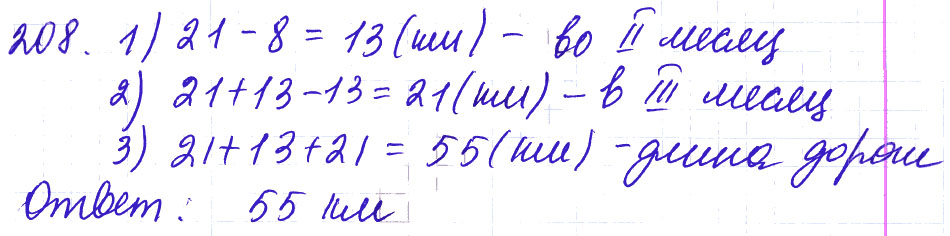 208. 1) 21 - 8 = 13 (км) - во II месяц
2) 21 + 13 - 13 = 21 (км) - в III месяц
3) 21 + 13 + 21 = 55 (км) - длина дороги
Ответ: 55 км